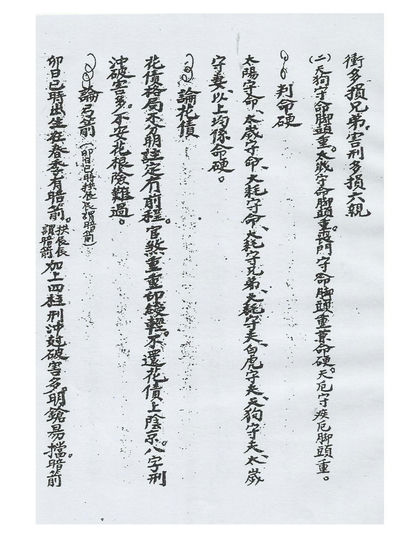 衝多損兄弟。害刑多損六親
(二)天狗守命脚頭重。太歲守命脚頭重。喪門守命脚頭重兼命硬。天厄守疾厄脚頭重。
判命硬
太陽守命、太歲守命、大耗守命、大耗守兄弟、大耗守夫、白虎守夫、天狗守夫、太歲
守妻、以上均係命硬。
論花債
花債格局不分明註定冇前程。官煞重重印綬輕。不還花債上陰京。八字刑
沖破害多。不安花根陰難過。
論弓箭(卯日巳時扶辰長謂暗箭)
卯日巳時出生在春季有暗箭。扶辰長謂暗箭加上四柱刑沖尅破害多。明鎗易擋。暗箭